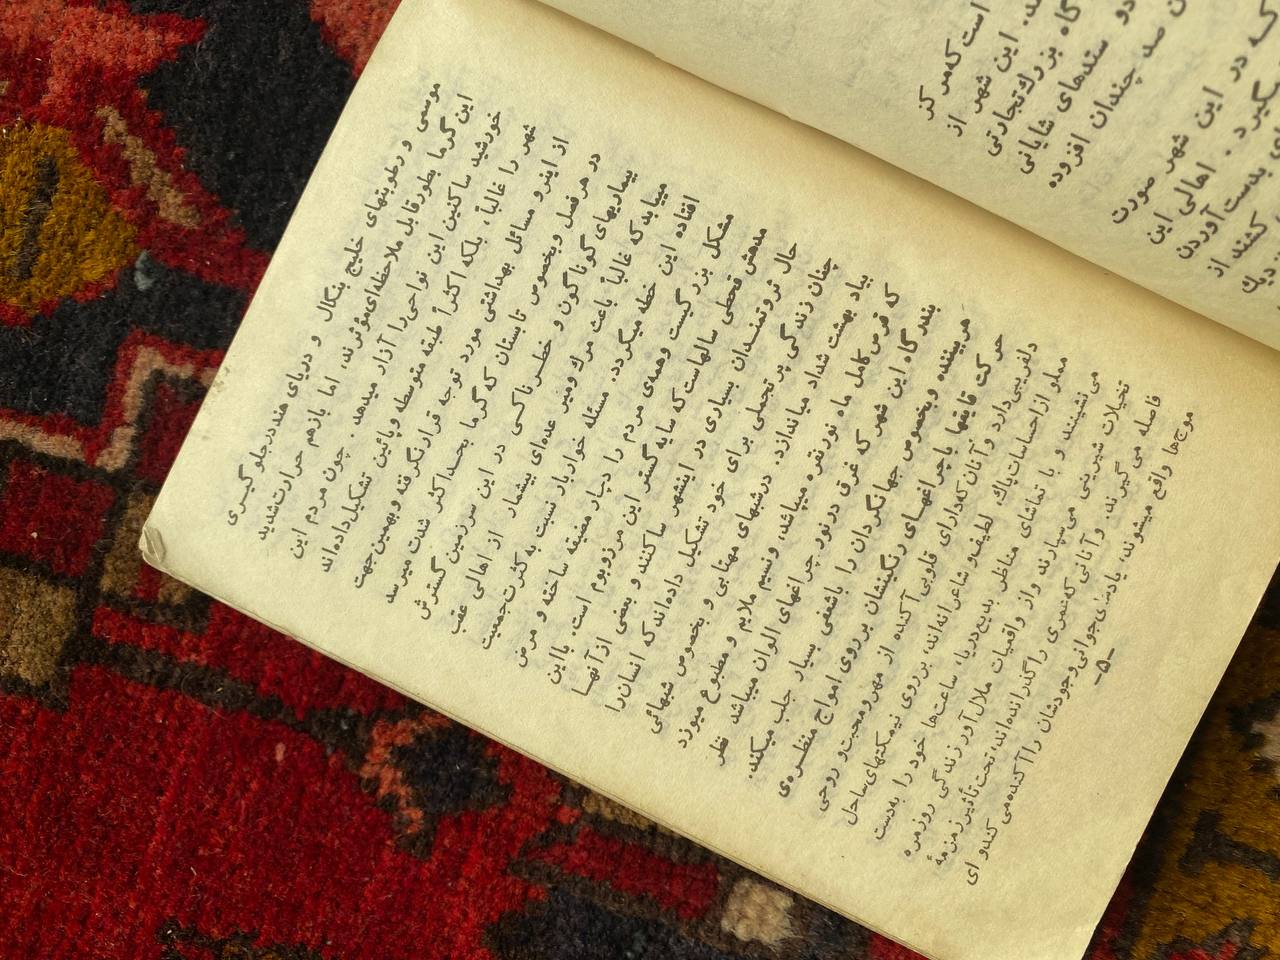 است که مرکز
این شهر از
گاه بزرگ تجارتی
دو سندهای شایانی
صد چندان افزوده
که در این شهر صورت
میگیرد . اهالی این
بدست آوردن
کشند از
دیک
موسمی و رطوبتهای خلیج بنگال و دریای هند در جلوگیری
این گرما بطور قابل ملاحظه‌ای مؤثرند، اما بازهم حرارت شدید
خورشید ساکنین این نواحی را آزار میدهد . چون مردم این
شهر را غالباً ، بلکه اکثراً طبقه متوسطه و پائین تشکیل داده‌اند
از اینرو مسائل بهداشتی مورد توجه قرار نگرفته و بهمین جهت
در هر فصل و بخصوص تابستان که گرما بحداکثر شدت میرسد
بیماریهای گوناگون و خطرناکی در این سرزمین گسترش
مییابد که غالباً باعث مرگ ومیر عده‌ای بیشمار از اهالی عقب
افتاده این خطه میگردد. مسئله خواربار نسبت به کثرت جمعیت
مشکل بزرگیست وهمه‌ی مردم را دچار مضیقه ساخته و مرض
مدهش قحطی سالهاست که سایه گستر این مرزوبوم است. بااین
حال ثروتمندان بسیاری در اینشهر ساکنند و بعضی از آنها
چنان زندگی پر تجملی برای خود تشکیل داده‌اند که انسان را
بیاد بهشت شداد میاندازد. درشبهای مهتابی و بخصوص شبهائی
که قرص کامل ماه نور نقره میپاشد، ونسیم ملایم و مطبوع میوزد
بندرگاه این شهر که غرق در نور چراغهای الوان میباشد نظر
هر بیننده و بخصوص جهانگردان را باشغفی بسیار جلب میکند.
حرکت قایقها با چراغهای رنگینشان بر روی امواج منظره‌ی
دلفریبی دارد و آنان که دارای قلوبی آکنده از مهرومحبت و روحی
مملو از احساسات پاک، لطیف و شاعرانه‌اند، بر روی نیمکتهای ساحل
می نشینند و با تماشای مناظر بدیع دریا، ساعت‌ها خود را به‌دست
تخیلات شیرینی می سپارند واز واقعیات ملال آور زندگی روزمره
فاصله می گیرند. و آنانی که عمری را گذرانده‌اند، تحت تأثیر زمزمهٔ
موج‌ها واقع میشوند، یادمنای جوانی وجودشان را آکنده می کند و ای
-۵-